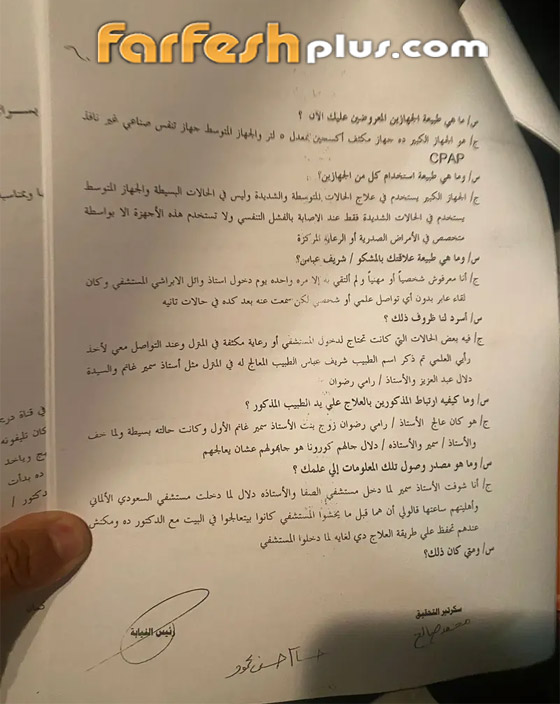 farfeshplus.com
س/ ما هي طبيعة الجهازين المعروضين عليك الآن ؟
ج/ هو الجهاز الكبير ده جهاز مكثف أكسجين بمعدل ٥ لتر والجهاز المتوسط جهاز تنفس صناعي غير نافذ
CPAP
س/ وما هي طبيعة استخدام كل من الجهازين؟
ج/ الجهاز الكبير يستخدم في علاج الحالات المتوسطة والشديدة وليس في الحالات البسيطة والجهاز المتوسط
يستخدم في الحالات الشديدة فقط عند الاصابة بالفشل التنفسي ولا تستخدم هذه الأجهزة الا بواسطة
متخصص في الأمراض الصدرية أو الرعاية المركزة
س/ وما هي طبيعة علاقتك بالمشكو / شريف عباس؟
ج/ أنا معرفوش شخصياً أو مهنياً ولم ألتقي به إلا مره واحده يوم دخول استاذ وائل الابراشي المستشفي وكان
لقاء عابر بدون أي تواصل علمي أو شخصي لكن سمعت عنه بعد كده في حالات تانيه
س/ أسرد لنا ظروف ذلك ؟
ج/ فيه بعض الحالات التي كانت تحتاج لدخول المستشفي أو رعاية مكثفة في المنزل وعند التواصل معي لأخذ
رأيي العلمي تم ذكر اسم الطبيب شريف عباس الطبيب المعالج له في المنزل مثل أستاذ سمير غانم والسيدة
دلال عبد العزيز والأستاذ / رامي رضوان
س/ وما كيفيه ارتباط المذكورين بالعلاج علي يد الطبيب المذكور ؟
ج/ هو كان عالج الأستاذ / رامي رضوان زوج بنت الأستاذ سمير غانم الأول وكانت حالته بسيطة ولما خف
والأستاذ / سمير والأستاذه / دلال جالهم كورونا هو جابهولهم عشان يعالجهم
س/ وما هو مصدر وصول تلك المعلومات إلي علمك ؟
ج/ أنا شوفت الأستاذ سمير لما دخل مستشفي الصفا والأستاذه دلال لما دخلت مستشفي السعودي الألماني
وأهليتهم ساعتها قالولي أن هما قبل ما يخشوا المستشفي كانوا بيتعالجوا في البيت مع الدكتور ده ومكنش
عندهم تحفظ علي طريقة العلاج دي لغايه لما دخلوا المستشفي
س/ ومتي كان ذلك؟
سكرتير التحقيق
رئيس النيابة
في قناة دريم
كان تليفونه
ده بدأت
الدكتور /